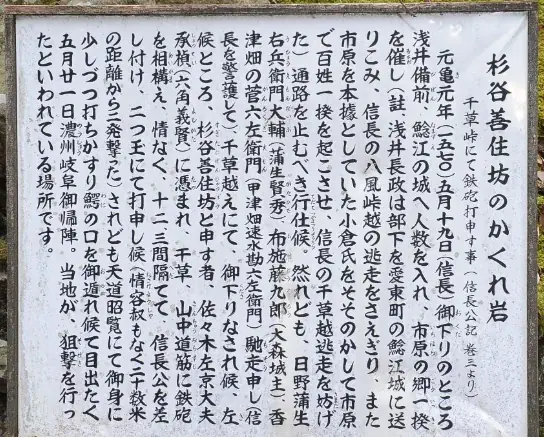 杉谷善住坊のかくれ岩
千草峠にて鉄砲打申す事(信長公記 巻三より)
元亀元年(一五七〇)五月十九日(信長)御下りのところ
浅井備前、鯰江の城へ人数を入れ、市原の郷一揆
を催し(註 浅井長政は部下を愛東町の鯰江城に送
りこみ、信長の八風峠越の逃走をさえぎり、また
市原を本據としていた小倉氏をそそのかして市原
で百姓一揆を起こさせ、信長の千草越逃走を妨げ
た)通路を止むべき行仕候。然れども、日野蒲生
右兵衛門大輔(蒲生賢秀)、布施藤九郎(大森城主)、香
津畑の菅六左衛門(甲津畑速水勘六左衛門)馳走申し(信
長を警護して)千草越えにて、御下りなされ候、左
候ところ、杉谷善住坊と申す者、佐々木左京大夫
承禎(六角義賢)に憑まれ、千草、山中道筋に鉄砲
を相構え、情なく、十二三間隔てて、信長公を差
し付け、二つ玉にて打申し候(情容赦もなく二十数米
の距離から三発撃た)されども天道昭覧にて御身に
少しづつ打ちかすり鰐の口を御遁れ候て目出たく
五月廿一日濃州岐阜御帰陣。当地が、狙撃を行っ
たといわれている場所です。